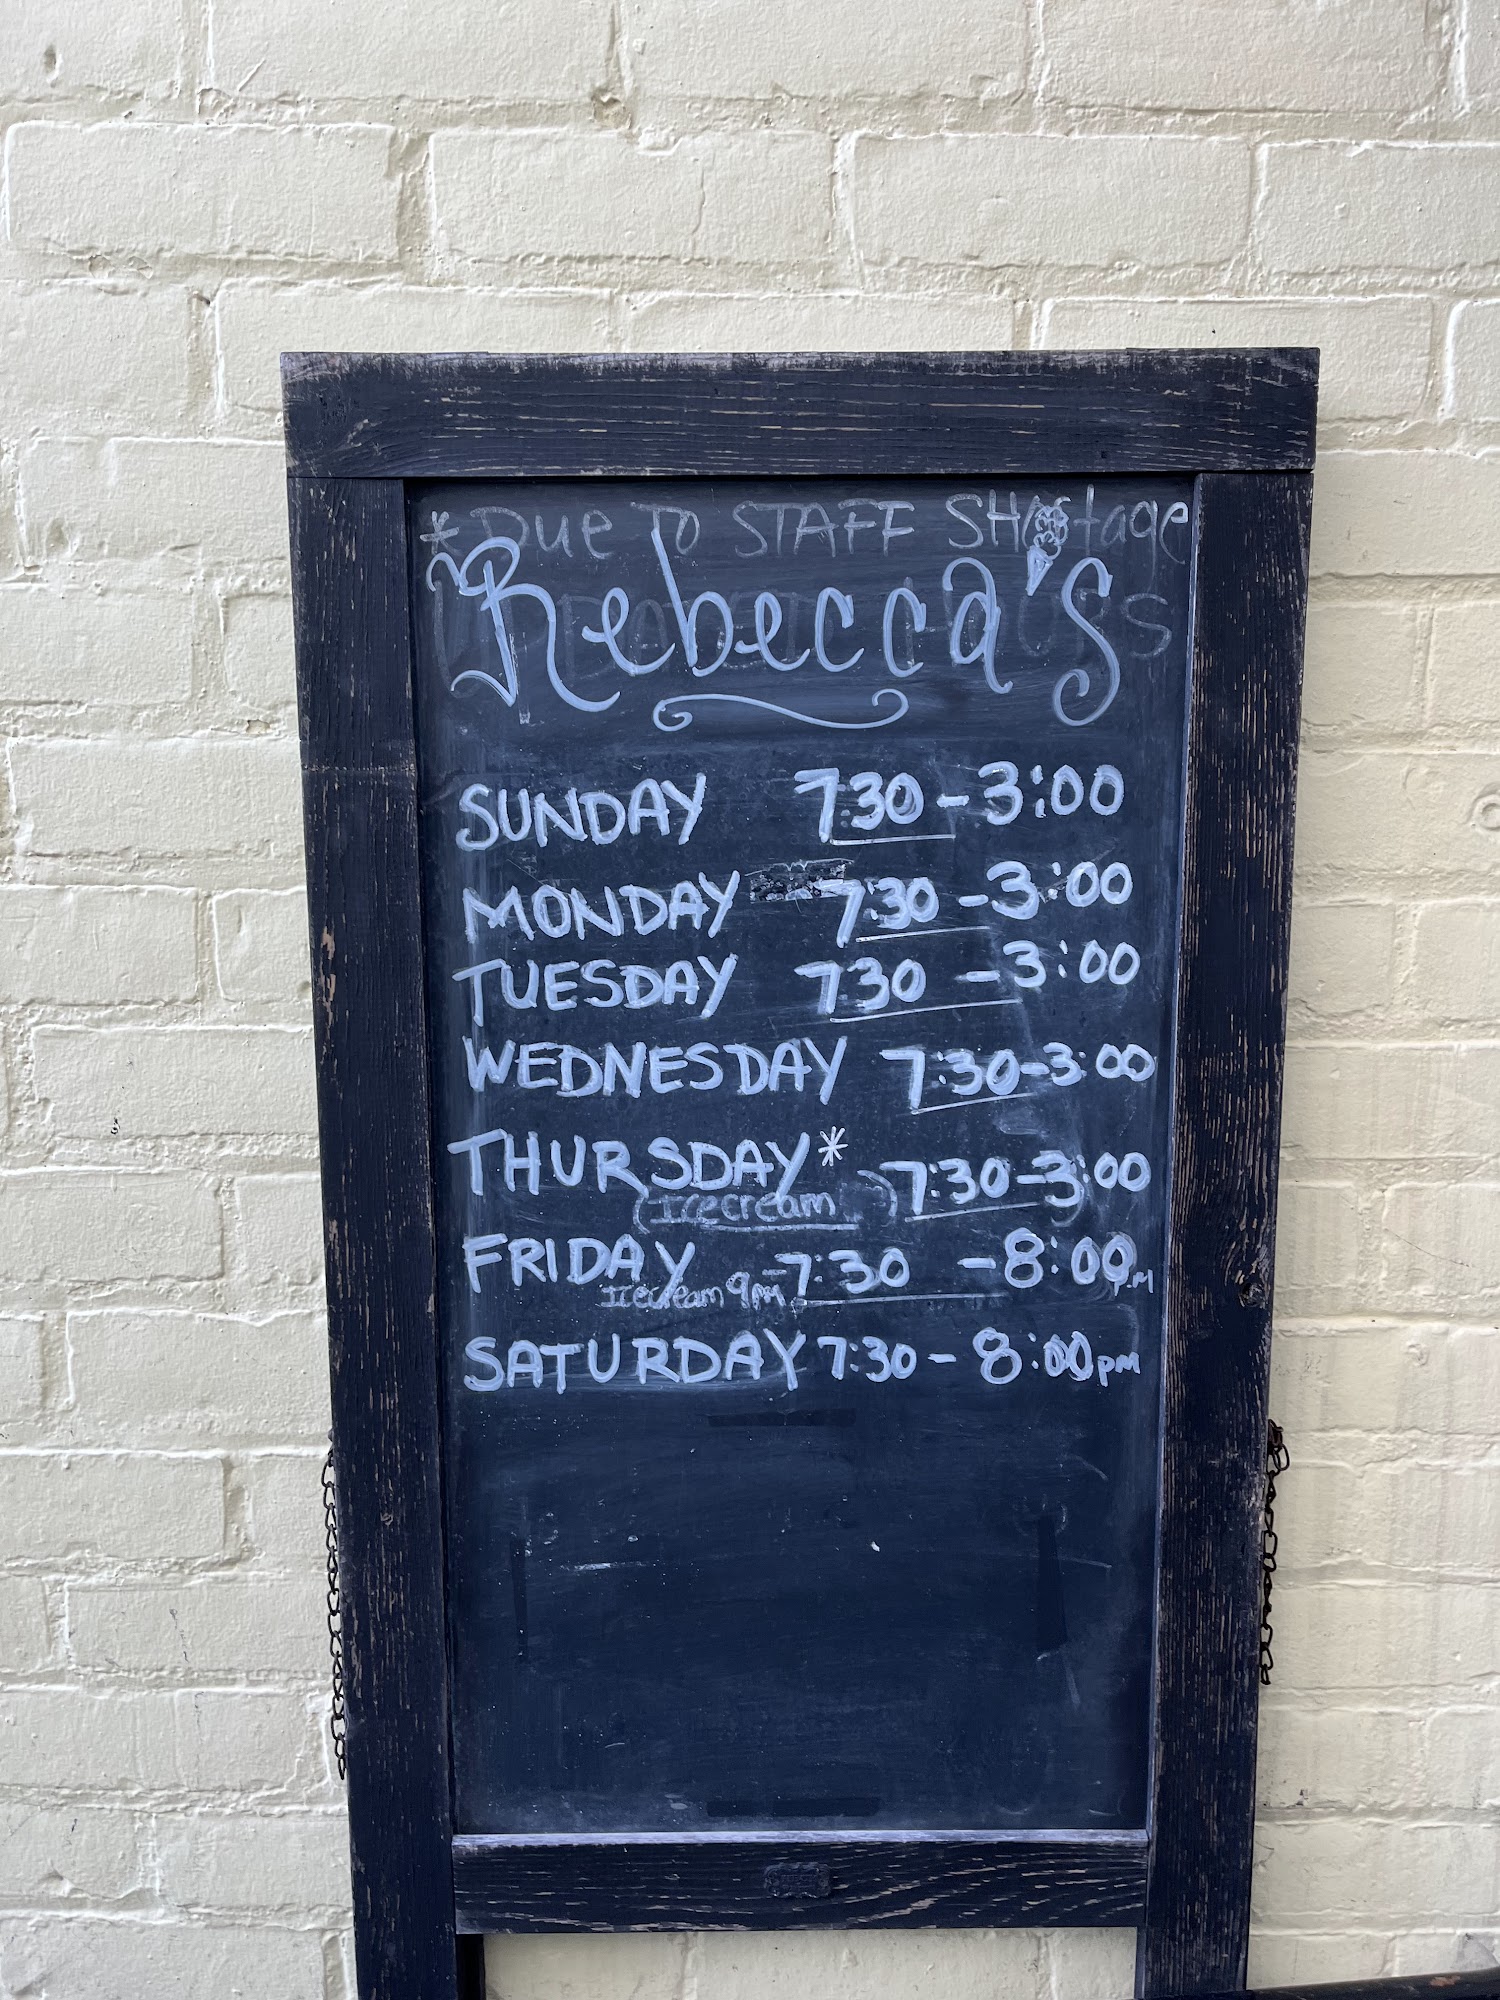 * Due TO STAFF SHortage
Rebecca's
SUNDAY 7:30 - 3:00
MONDAY 7:30 - 3:00
TUESDAY 730 - 3:00
WEDNESDAY 7:30-3:00
THURSDAY* 7:30-3:00
(Icecream)
FRIDAY 7:30 - 8:00PM
Icecream 9pm
SATURDAY 7:30 - 8:00pm